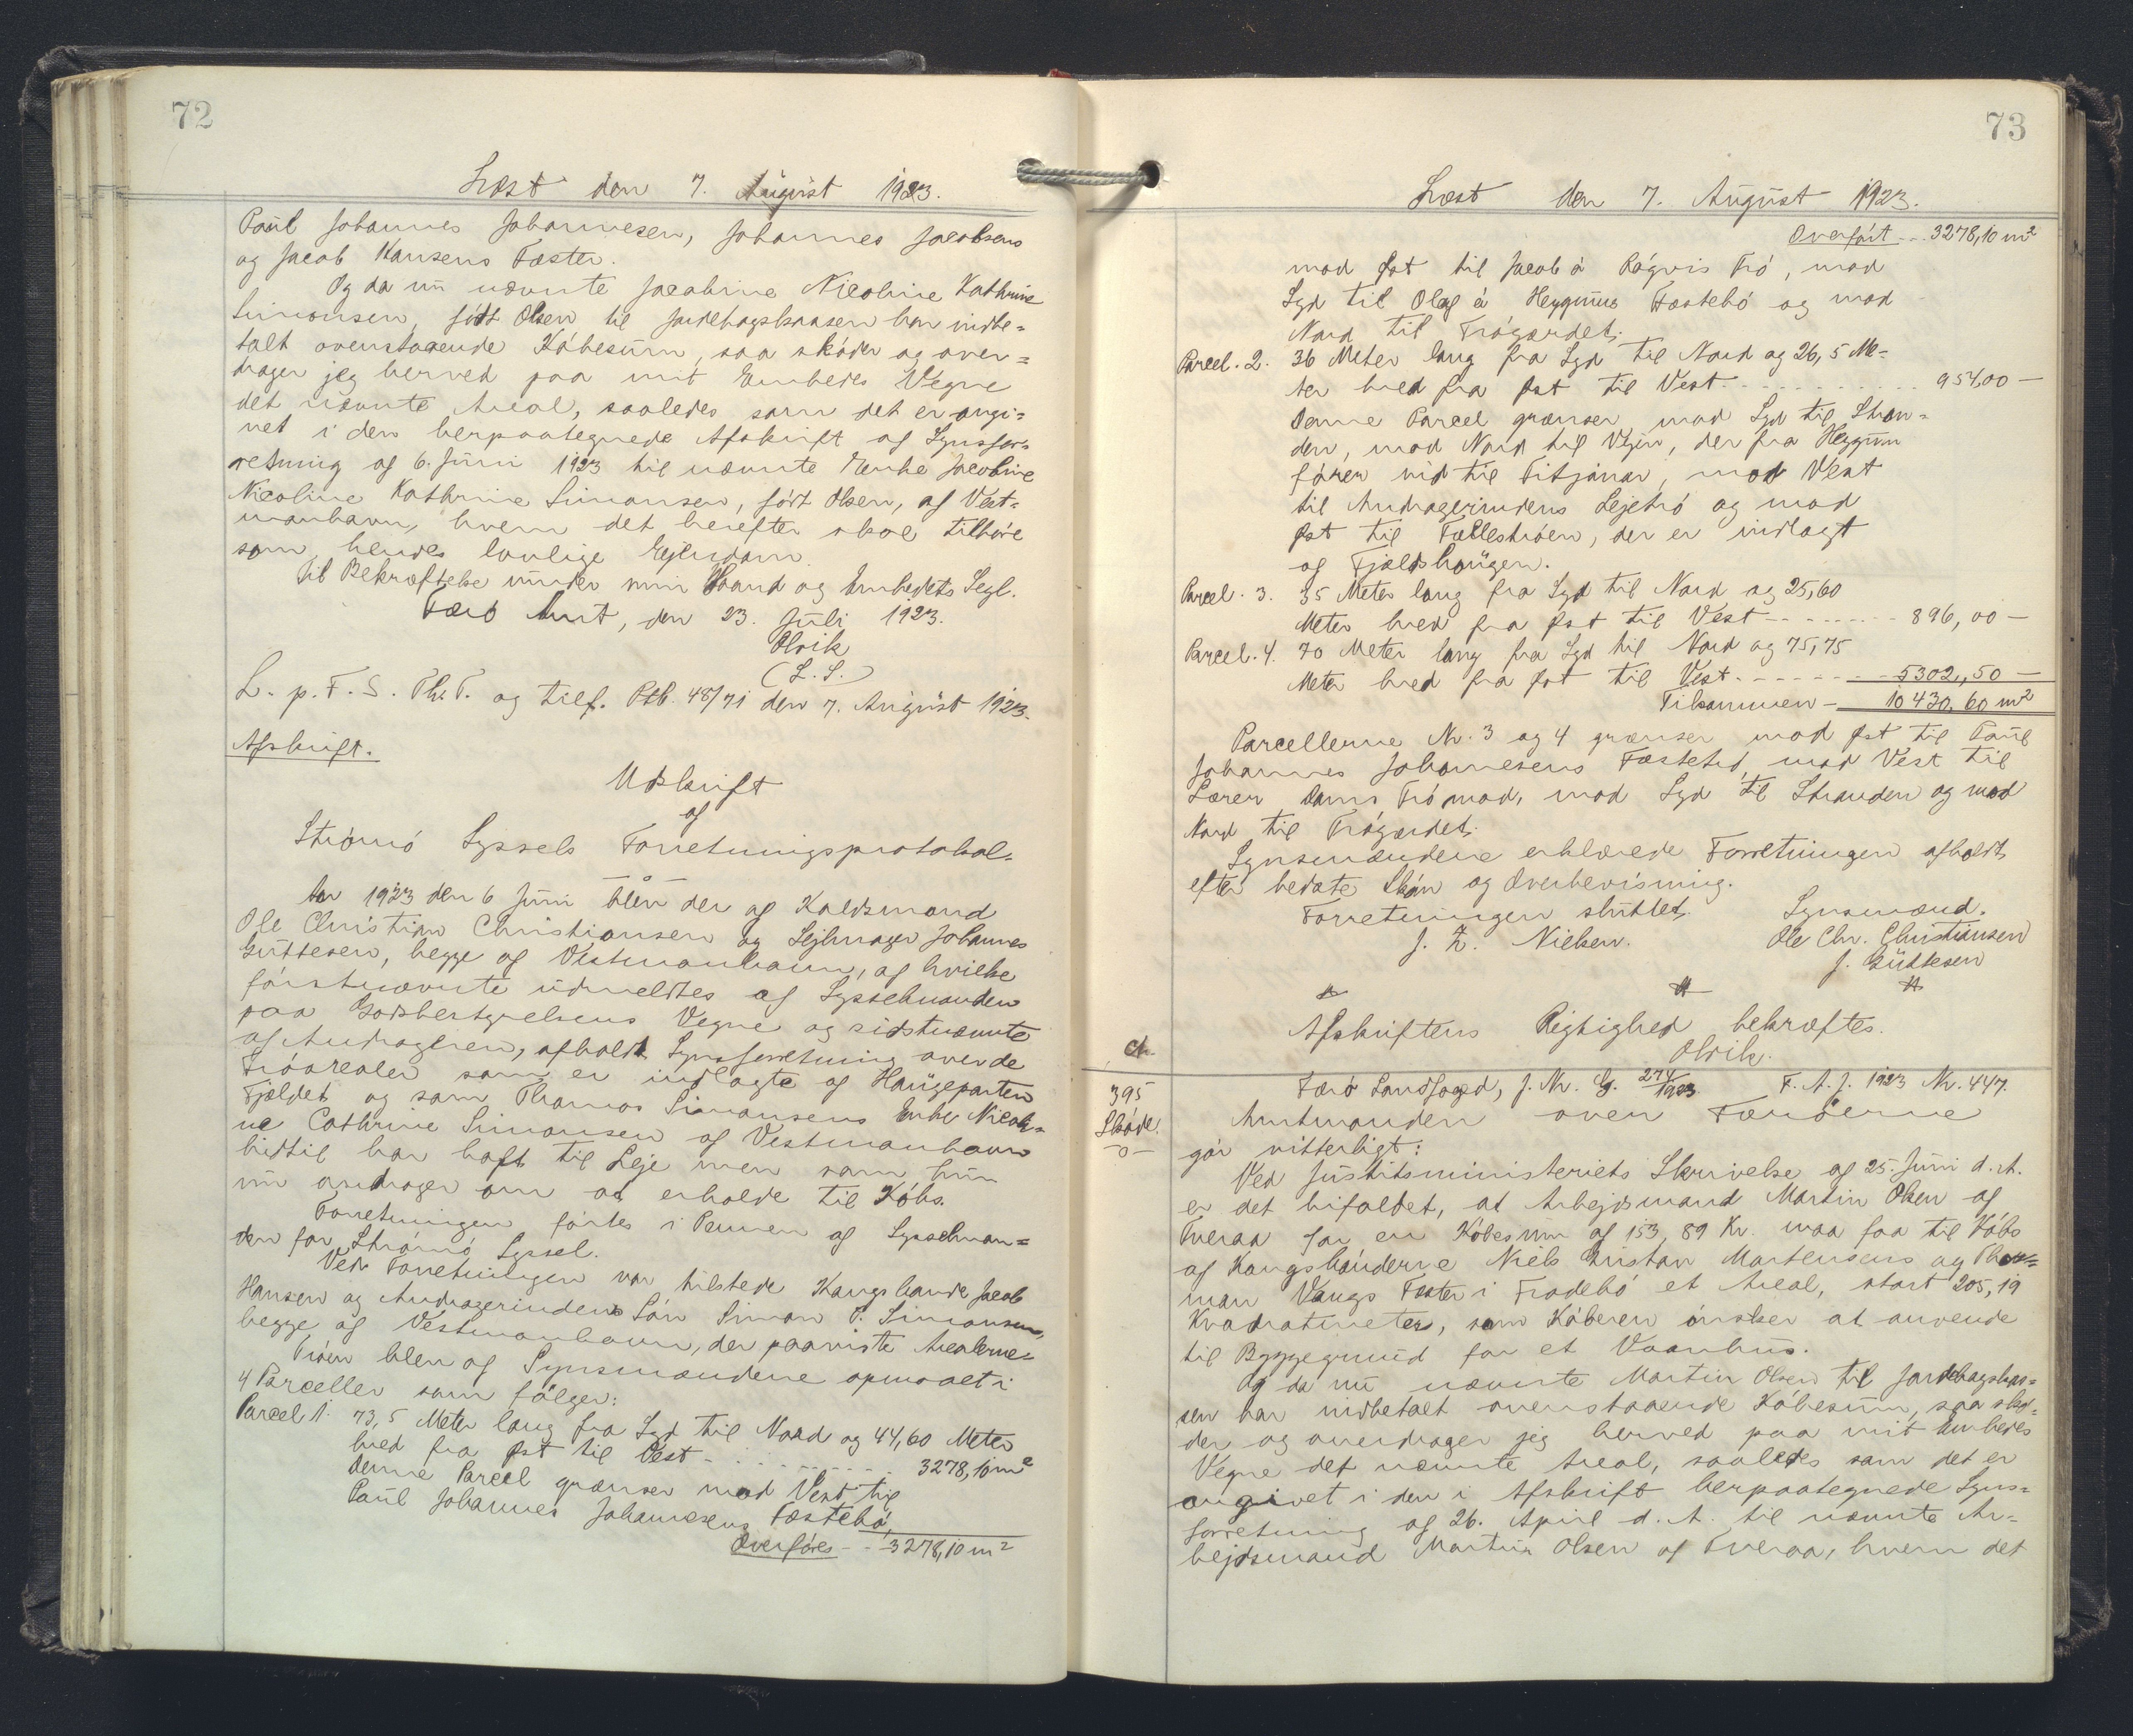 72
Læst den 7. August 1923.
Paul Johannes Johannesen, Johannes Jacobsens
og Jacob Hansens Fæster.
Og da nu nævnte Jacobine Nicoline Kathrine
Simonsen, født Olsen til Jordebogskassen har indbe=
talt ovenstaaende Købesum, saa skøder og over=
drager jeg herved paa mit Embedes Vegne
det nævnte Areal, saaledes som det er angi=
vet i den herpaategnede Afskrift af Synsfor=
retning af 6. Juni 1923 til nævnte Enke Jacobine
Nicoline Kathrine Simonsen, født Olsen, af Vest=
manhavn, hvem det herefter skal tilhøre
som hendes lovlige Ejendom.
Til Bekræftelse under min Haand og Embedets Segl.
Færø Amt, den 23. Juli 1923.
Olrik
(L. S.)
L. p. F. S. Th. T. og tilf. Ptb. 48/71 den 7. August 1923.
Afskrift.
Udskrift
af
Strømø Syssels Forretningsprotokol.
Aar 1923 den 6 Juni blev der af Kaldsmand
Ole Christian Christiansen og Sejlmager Johannes
Guttesen, begge af Vestmanhavn, af hvilke
førstnævnte udmeldtes af Sysselmanden
paa Godsbestyrelsens Vegne og sidstnævnte
af Andrageren, afholdt Synsforretning over de
Trøarealer som er indlagte af Haugeparten
Fjeldet og som Thomas Simonsens Enke Nicoli=
ne Cathrine Simonsen af Vestmanhavn
hidtil har haft til Leje men som hun
nu andrager om at erholde til Købs.
Forretningen førtes i Pennen af Sysselman=
den for Strømø Syssel.
Ved Forretningen var tilstede Kongsbonde Jacob
Hansen og Andragerindens Søn Simon P. Simonsen,
begge af Vestmanhavn, der paaviste Arealerne.
Trøen blev af Synsmændene opmaalt i
4 Parceller som følger:
Parcel 1. 73,5 Meter lang fra Syd til Nord og 44,60 Meter
bred fra Øst til Vest - - - 3278,10 m²
Denne Parcel grænser mod Vest til
Paul Johannes Johannesens Fæstebø,
Overføres - - 3278,10 m²
73
Læst den 7. August 1923.
Overført - - 3278,10 m²
mod Øst til Jacob á Rógvis Trø, mod
Syd til Olaf á Heygnus Fæstebø og mod
Nord til Trøgærdet.
Parcel. 2. 36 Meter lang fra Syd til Nord og 26,5 Me=
ter bred fra Øst til Vest - - - 954,00 —
Denne Parcel grænser mod Syd til Stran=
den, mod Nord til Vejen, der fra Heygnum
fører ud til Fitjánar, mod Vest
til Andragerindens Lejetrø og mod
Øst til Fællestrøen, der er indlagt
af Fjeldshaugen.
Parcel. 3. 35 Meter lang fra Syd til Nord og 25,60
Meter bred fra Øst til Vest - - - 896,00 —
Parcel. 4. 70 Meter lang fra Syd til Nord og 75,75
Meter bred fra Øst til Vest - - - 5302,50 —
Tilsammen — 10430,60 m²
Parcellerne Nr. 3 og 4 grænser mod Øst til Paul
Johannes Johannesens Fæstetrø, mod Vest til
Lærer Dams Trø mod, mod Syd til Stranden og mod
Nord til Trøgærdet.
Synsmændene erklærede Forretningen afholdt
efter bedste Skøn og Overbevisning.
Forretningen sluttet. Synsmænd.
J. Z. Nielsen. Ole Chr. Christiansen
J. Guttesen
Afskriftens Rigtighed bekræftes.
Olrik.
395
Skøde.
Færø Landfoged, J. Nr. G. 274/1923. F. A. J. 1923 Nr. 447.
Amtmanden over Færøerne
gør vitterligt:
Ved Justitsministeriets Skrivelse af 25. Juni d. A.
er det bifaldet, at Arbejdsmand Martin Olsen af
Tveraa for en Købesum af 153,89 Kr. maa faa til Købs
af Kongsbønderne Niels Kristan Mortensens og Thor=
man Vangs Fæster i Frodebø et Areal, stort 205,19
Kvadratmeter, som Køberen ønsker at anvende
til Byggegrund for et Vaanhus.
Og da nu nævnte Martin Olsen til Jordebogskas=
sen har indbetalt ovenstaaende Købesum, saa skø=
der og overdrager jeg herved paa mit Embedes
Vegne det nævnte Areal, saaledes som det er
angivet i den i Afskrift herpaategnede Syns=
forretning af 26. April d. A. til nævnte Ar=
bejdsmand Martin Olsen af Tveraa, hvem det